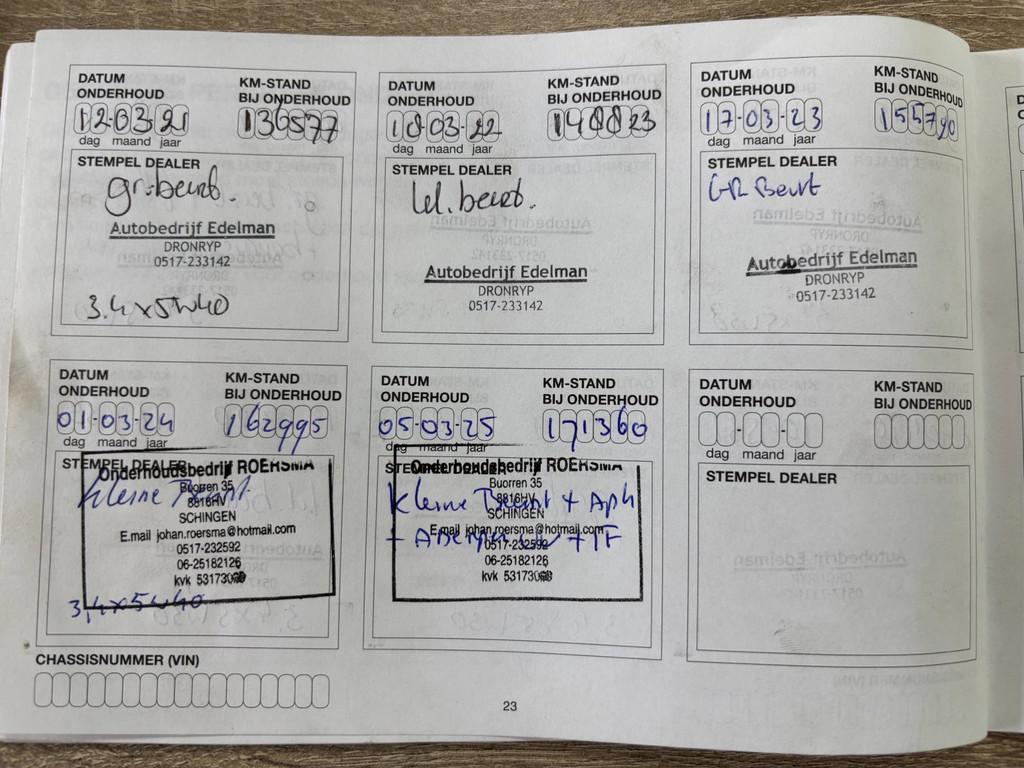 DATUM ONDERHOUD
KM-STAND BIJ ONDERHOUD
12-03-21
136577
dag maand jaar
STEMPEL DEALER
gr. beurt.
Autobedrijf Edelman
DRONRYP
0517-233142
3.4 x 5W40
DATUM ONDERHOUD
KM-STAND BIJ ONDERHOUD
10-03-22
148823
dag maand jaar
STEMPEL DEALER
kl. beurt.
Autobedrijf Edelman
DRONRYP
0517-233142
DATUM ONDERHOUD
KM-STAND BIJ ONDERHOUD
17-03-23
155790
dag maand jaar
STEMPEL DEALER
GR Beurt
Autobedrijf Edelman
DRONRYP
0517-233142
DATUM ONDERHOUD
KM-STAND BIJ ONDERHOUD
01-03-24
162995
dag maand jaar
STEMPEL DEALER
Onderhoudsbedrijf ROERSMA
Kleine Beurt
Buorren 35
8816HV
SCHINGEN
E.mail johan.roersma@hotmail.com
0517-232592
06-25182126
kvk
3,4 x 5w40
DATUM ONDERHOUD
KM-STAND BIJ ONDERHOUD
05-03-25
171360
dag maand jaar
STEMPEL DEALER
Onderhoudsbedrijf ROERSMA
Buorren 35
8816HV
Kleine Beurt + Apk
SCHINGEN
E.mail johan.roersma@hotmail.com
+ + IF
0517-232592
06-25182126
kvk
DATUM ONDERHOUD
KM-STAND BIJ ONDERHOUD
dag maand jaar
STEMPEL DEALER
CHASSISNUMMER (VIN)
23